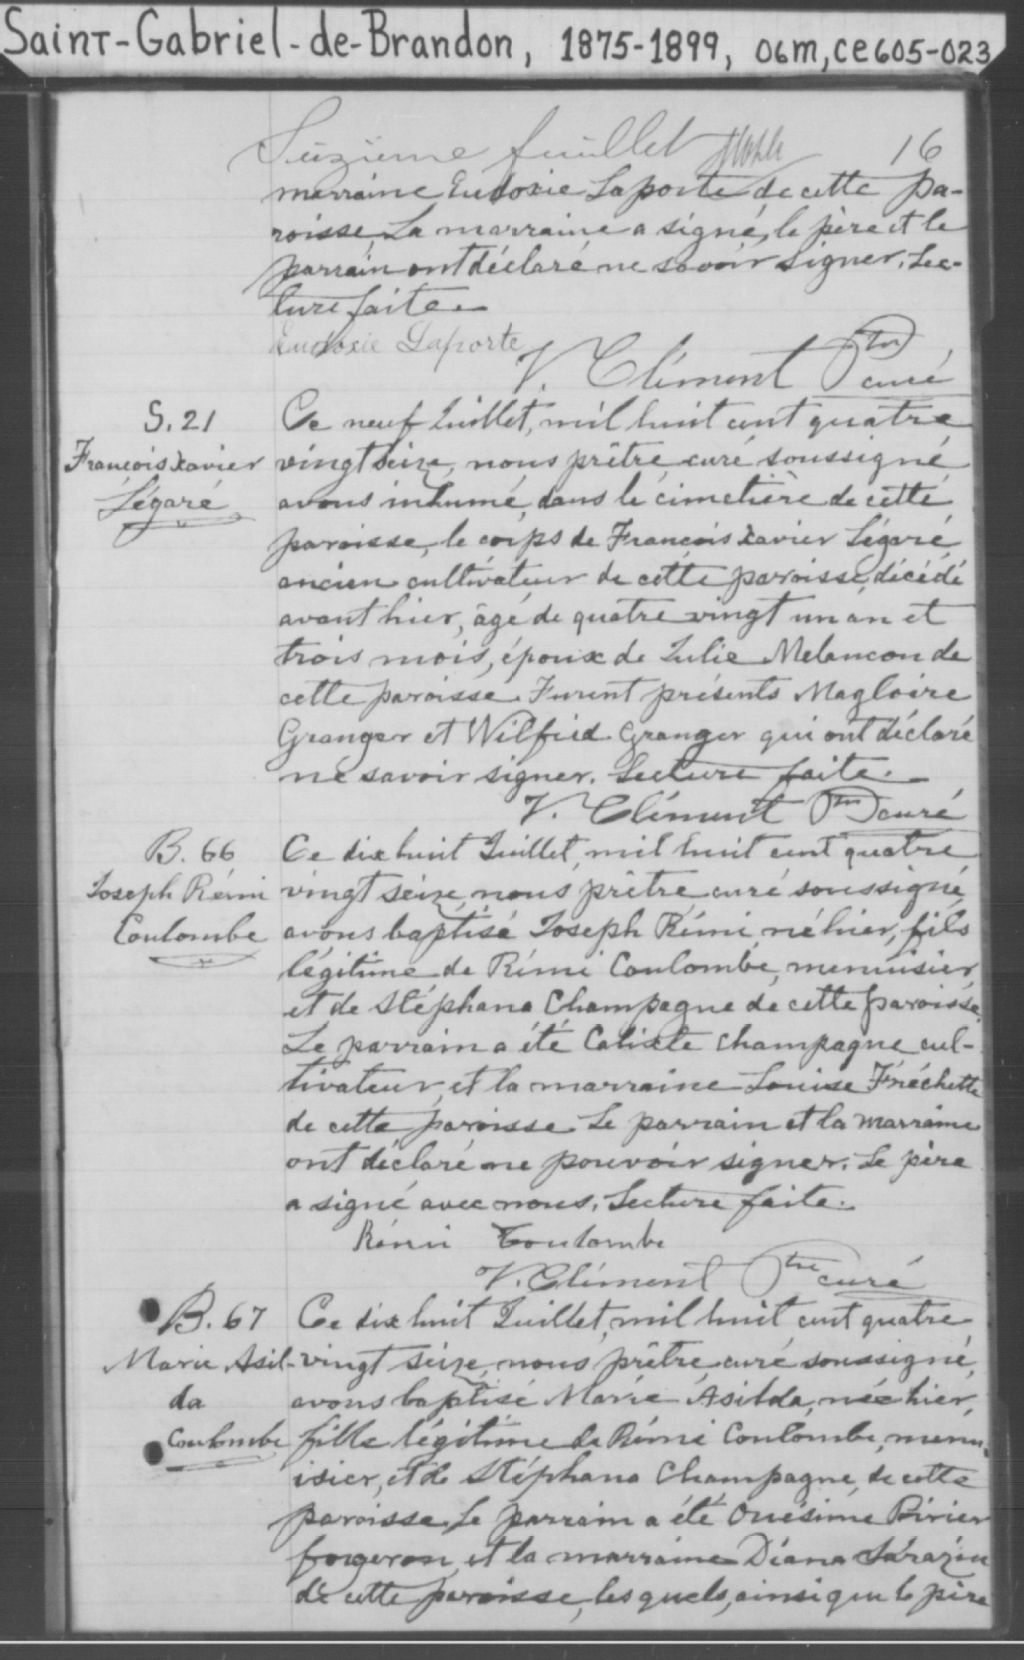 Saint-Gabriel-de-Brandon, 1875-1899, 06m, ce605-023
Seizième feuillet 16
marraine Eudoxie Laporte de cette pa-
roisse. La marraine a signé, le père et le
parrain ont déclaré ne savoir signer. Lec-
ture faite.
Eudoxie Laporte
V. Clément Ptre curé
S. 21
François Xavier
Légaré
Ce neuf Juillet, mil huit cent quatre
vingt seize, nous prêtre curé soussigné
avons inhumé, dans le cimetière de cette
paroisse, le corps de François Xavier Légaré
ancien cultivateur de cette paroisse, décédé
avant hier, âgé de quatre vingt un an et
trois mois, époux de Julie Melancon de
cette paroisse. Furent présents Magloire
Granger et Wilfrid Granger qui ont déclaré
ne savoir signer. Lecture faite.
V. Clément Ptre curé
B. 66
Joseph Rémi
Coulombe
Ce dix huit Juillet, mil huit cent quatre
vingt seize, nous prêtre curé soussigné,
avons baptisé Joseph Rémi, né hier, fils
légitime de Rémi Coulombe, menuisier
et de Stéphana Champagne de cette paroisse.
Le parrain a été Calixte Champagne cul-
tivateur, et la marraine Louise Fréchette
de cette paroisse. Le parrain et la marraine
ont déclaré ne pouvoir signer. Le père
a signé avec nous. Lecture faite.
Rémi Coulombe
V. Clément Ptre curé
B. 67
Marie Asil-
da
Coulombe
Ce dix huit Juillet, mil huit cent quatre
vingt seize, nous prêtre, curé soussigné,
avons baptisé Marie Asilda, née hier,
fille légitime de Rémi Coulombe, menu-
isier, et de Stéphana Champagne, de cette
paroisse. Le parrain a été Onésime Poirier
forgeron, et la marraine Diana Sarazin
de cette paroisse, lesquels, ainsi que le père